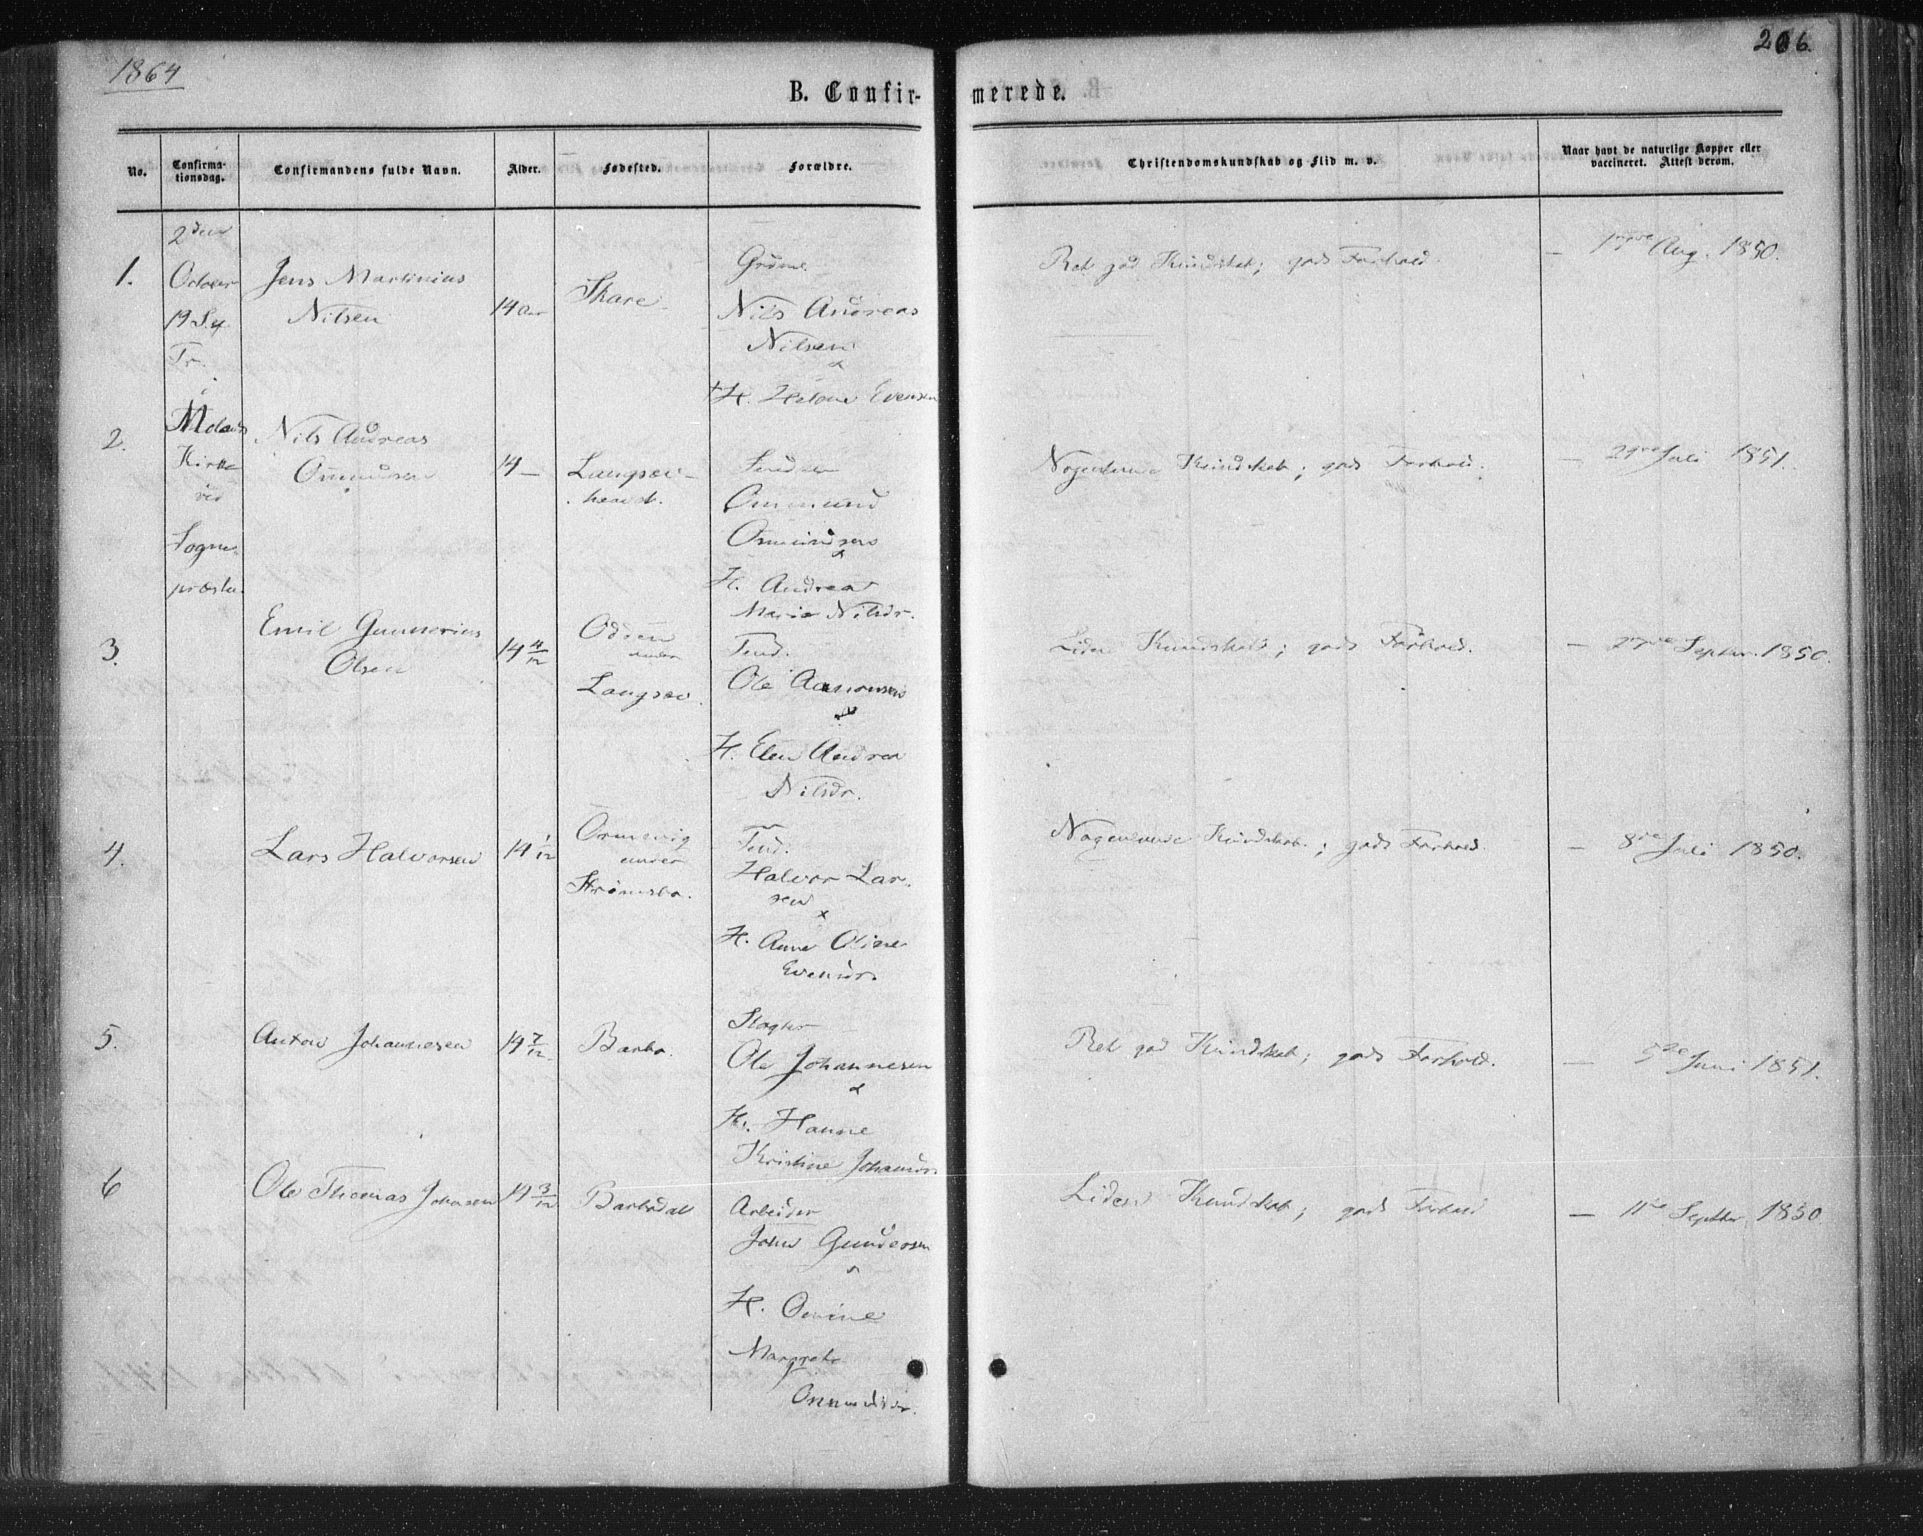 1864
206.
B. Confirmerede.
No.
Confirmationsdag.
Confirmandens fulde Navn.
Alder.
Fødested.
Forældre.
Christendomskundskab og Flid m. v.
Naar havt de naturlige Kopper eller vaccineret. Attest derom.
2den
October
19 S. ef.
Tr.
i
Molands
Kirke
ved
Sogne-
præsten.
1.
Jens Martinius
Nilsen
14 Aar
Skare
Nils Andreas
Nilsen
H. Helene Evensen
Ret god Kundskab; gods Forhold.
Aug. 1850.
2.
Nils Andreas
Ommundsen
14 —
Langsæv-
heved.
Ommund
Osmundsen
H. Andrea
Marie Nilsdr.
Nogenlunde Kundskab; gods Forhold.
— Juli 1851.
3.
Emil Gunnerius
Olsen
14 4/12
under
Langsæv.
Tend.
Ole Aanonsen
H. Elen Andrea
Nilsdr.
Liden Kundskab; gods Forhold.
— Septbr. 1850.
4.
Lars Halvorsen
14 1/12
Ormevig
under
Strømsbo.
Tend.
Halvor Lar-
sen
x
H. Anne Oline
Evensdr.
Nogenlunde Kundskab; gods Forhold.
— 8de Juli 1850.
5.
Anton Johannesen
14 7/12
Barbo.
Slagter
Ole Johannesen
H. Hanne
Kristine Johansdr.
Ret god Kundskab; gods Forhold.
— Juni 1851.
6
Ole Thomas Johnsen
14 3/12
Barbodal
Arbeider
John Gundersen
H.
Margrete
Ommundsdr.
Liden Kundskab; gods Forhold
— 11te Septbr. 1850.